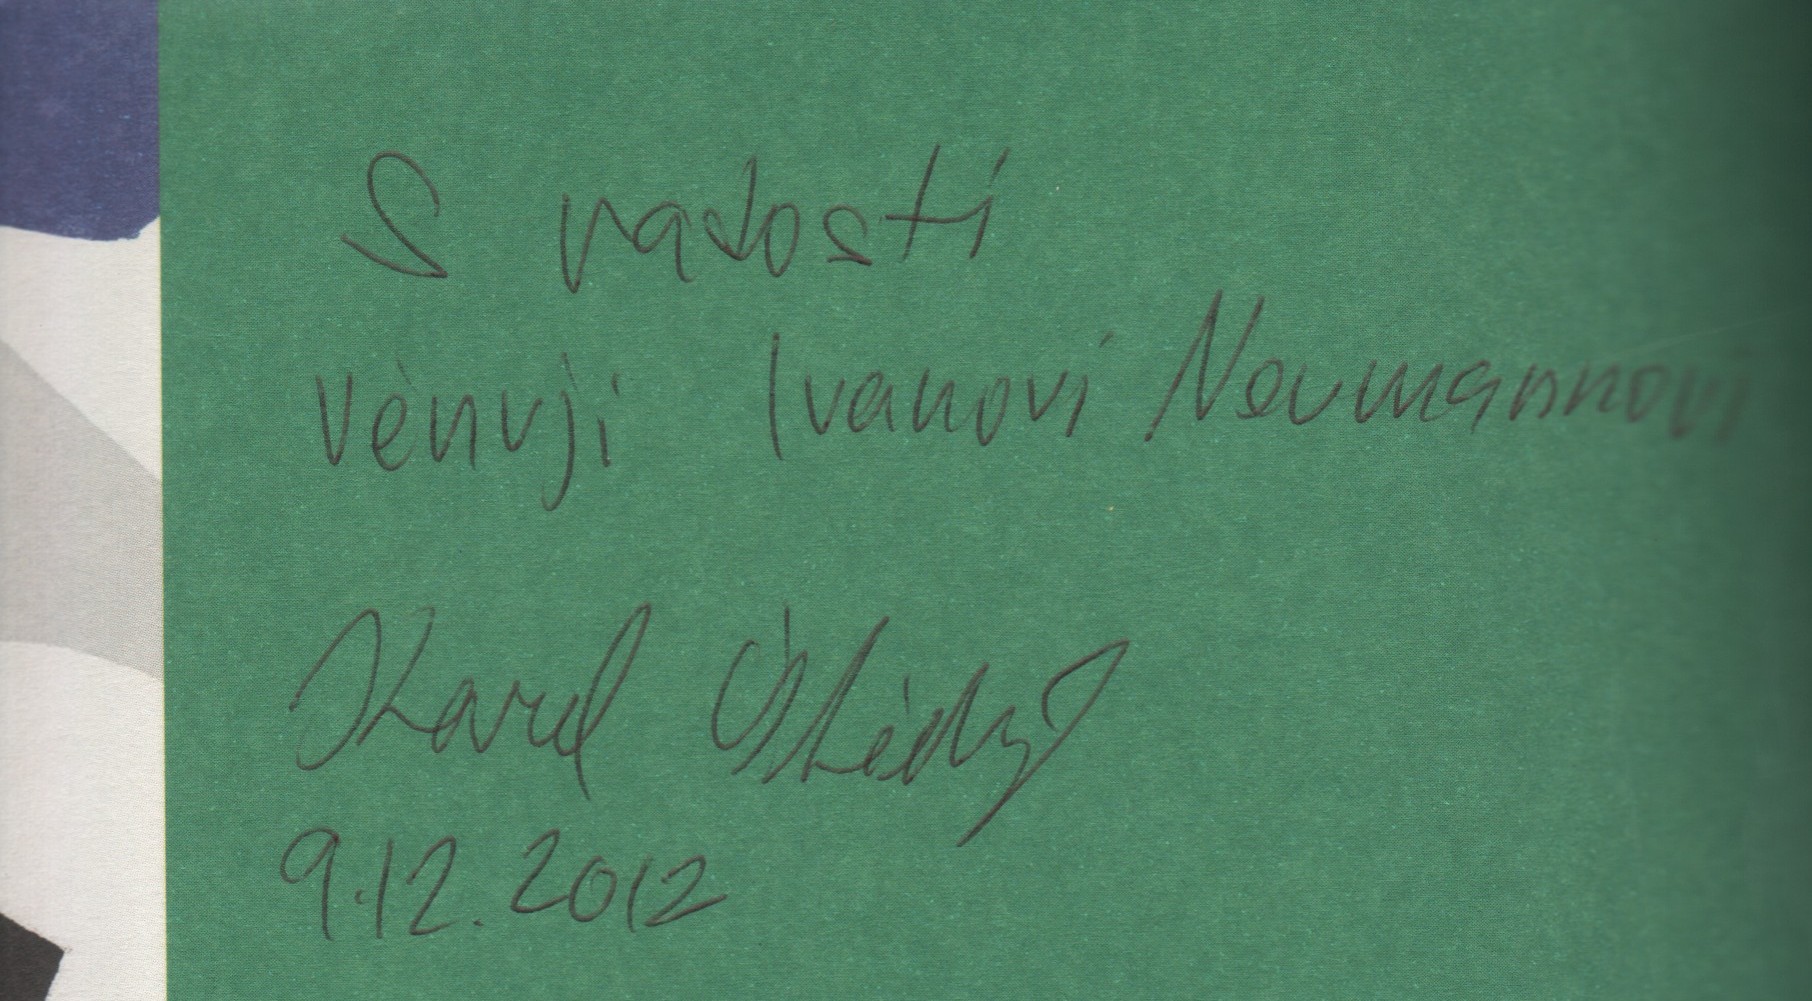 S radostí
věnuji Ivanovi Neumannovi
Karel
9.12.2012